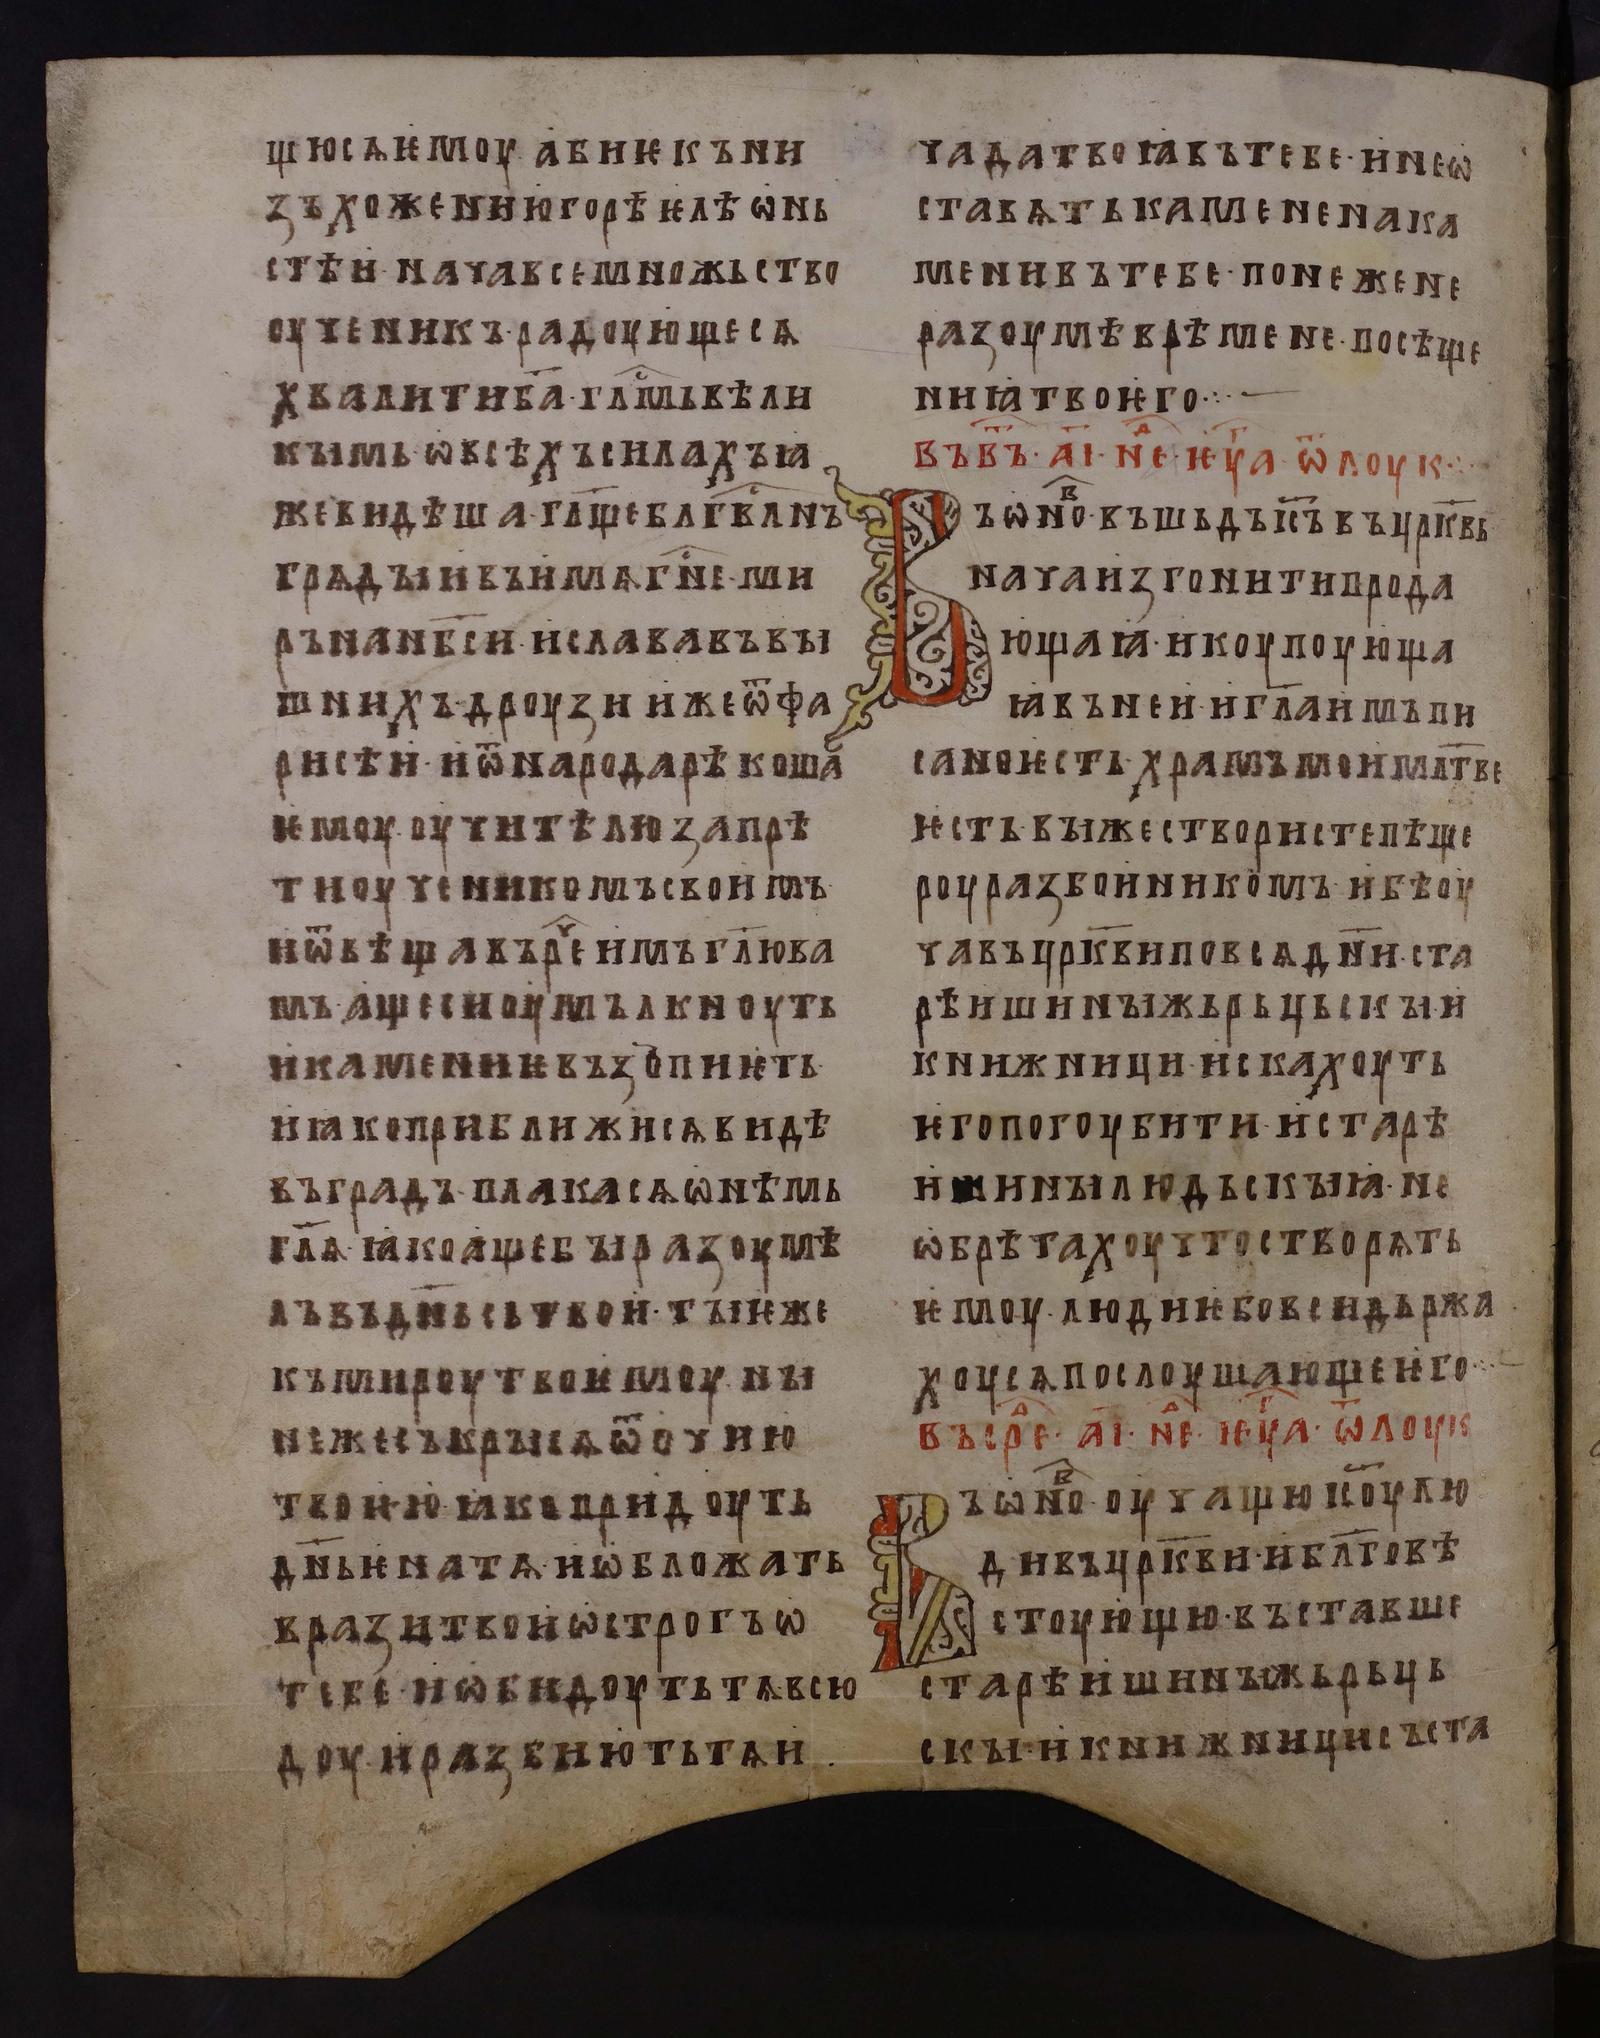 щюсѧѥмоу абиѥкъни
зъхожениюгорѣѥлѣѡнь
стѣи· начавсемножьство
оученикъ·радоующесѧ
хвалитиба҃·глⷭ҇мьвѣли
кымь·ѡвсѣхъсилахъꙗ
жевидѣша·гл҃щеблгⷭ҇влнъ
грѧдыивъимѧгⷭ҇не·ми
рънанб҃си·иславававъвы
шнихъ·дроузиижеѿфа
рисѣи·иѿнародарѣкоша
ѥмоу·оучитѣлюзапрѣ
тиоученикомъсвоимъ·
иѿвѣщавърⷱ҇еимъгл҃юва
мъ·ащесиоумълкноуть
икамениѥвъзопиѥть·
иꙗкоприближисѧвидѣ
въградъ·плакасѧѡнѣмь
гл҃ѧ·ꙗкоащебыразоумѣ
лъвъдн҃ьсьтвои·тыѥже
къмироутвоѥмоу·ны
нежесъкрысѧѿочию
твоѥю·ꙗкопридоуть
дн҃ьѥнатѧ·иѡбложать
вразитвоиѡстрогъѡ
тебе·иѡбидоутьтѧвсю
доу·иразбиютьтѧи·
чадатвоꙗвътебе·инеѡ
ставѧтькамененака
менивътебе·понежене
разоумѣврѣмене·посѣще
ниꙗтвоѥго·:·—
въвт҃ъ·а҃і·нⷣе·ѥуⷢ҇а·ѿлоук·:·
Въѡнⷡ҇о·въшьдъіс҃ъвъцр҃квь
начаизгонитипрода
ющаꙗ·икоупоующа
ꙗвънеи·игл҃аимъпи
саноѥсть·храмъмоимлт҃ве
ѥсть·выжествористепѣще
роуразбоиникомъ·ибѣоу
чавъцр҃квиповсѧдн҃и·ста
рѣишиныжьрьцьскыи
книжници·искахоуть
ѥгопогоубити·истарѣ
ишиныльюдьскыꙗ·не
ѡбрѣтахоучтостворѧть
ѥмоу·людиѥбовсидьржа
хоусѧпослоушающеѥго·:·—
въсрⷣе·а҃і·нⷣе·ѥуⷢ҇а·ѿлоук
Въѡнⷡ҇о·оучащюіс҃оулю
дивъцр҃кви·иблг҃овѣ
стоующю·въставше
старѣишиныжьрьць
скы·икнижницисъста